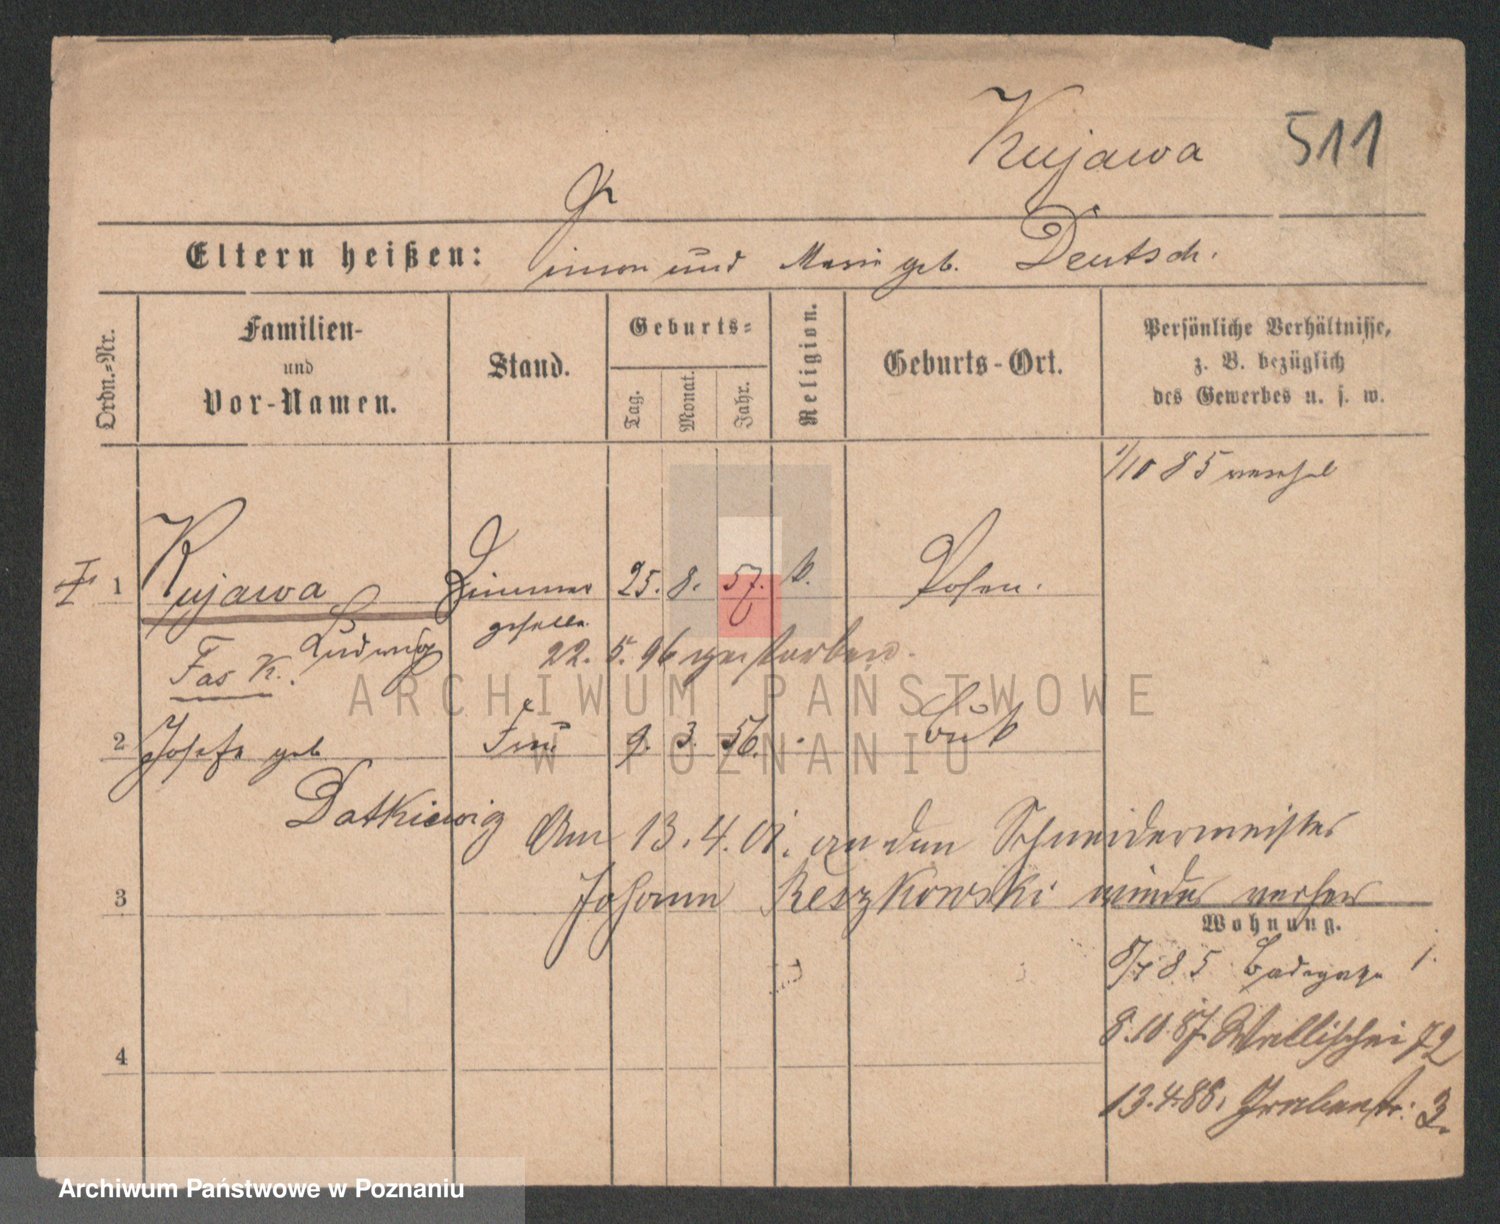 Kujawa 511
Eltern heißen: Simon und Marie geb. Deutsch.
Ordn.-Nr.
Familien-
und
Vor-Namen.
Stand.
Geburts-
Tag.
Monat.
Jahr.
Religion.
Geburts-Ort.
Persönliche Verhältnisse,
z. B. bezüglich
des Gewerbes u. s. w.
1/10 85
I 1 Kujawa Zimmer 25. 8. 57. k. Posen.
geselle
Ludwig
Fas K.
22. 5. 96 gestorben.
2 Josefa geb Frau 9. 3. 56. Buk
Datkiewig
Am 13. 4. 01. an den Schneidermeister
3 Johann Reszkowski wieder verheir
Wohnung.
85 Badegasse 1.
8.10.87 Wallischei 72
4
13.4.88. Grabenstr. 3.
ARCHIWUM PAŃSTWOWE
W POZNANIU
Archiwum Państwowe w Poznaniu